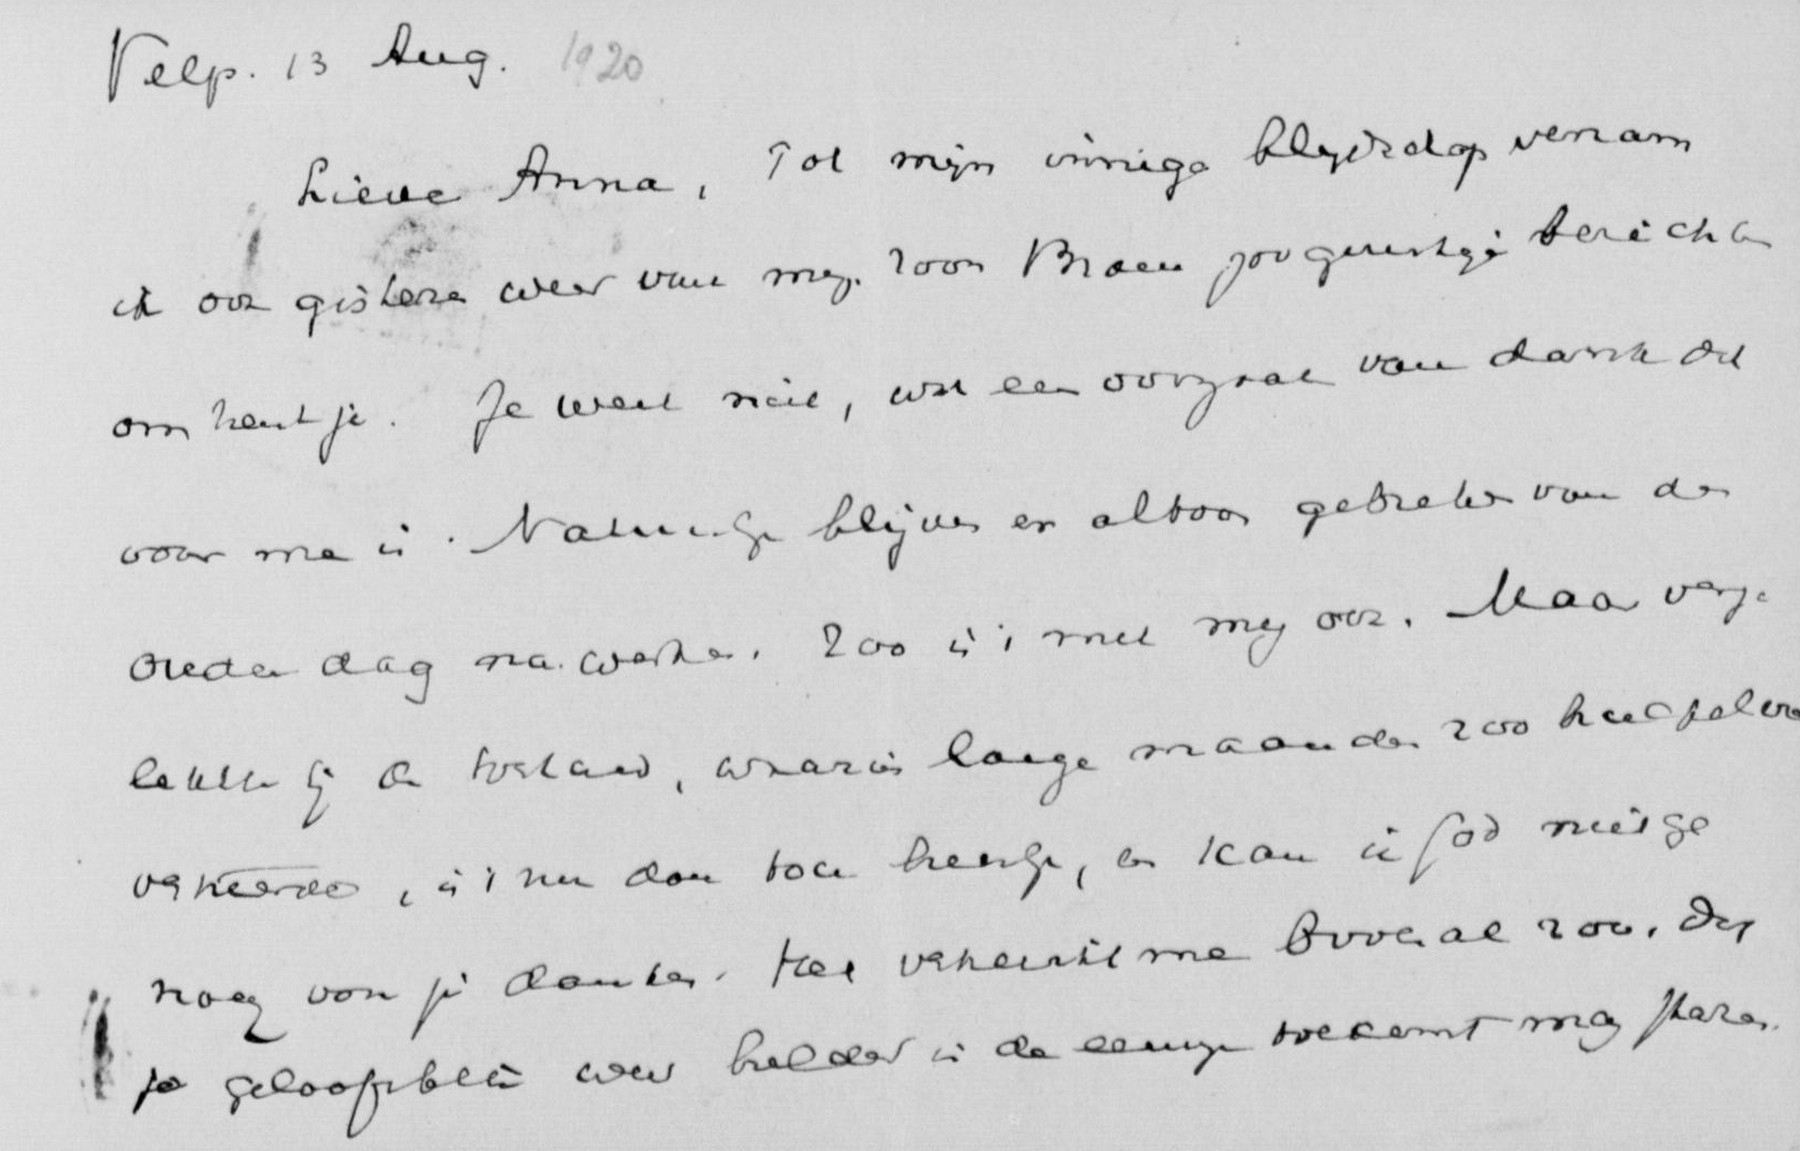 Velp. 13 Aug. 1920
Lieve Anna, Tot mijn innige blijdschap vernam
ik ook gisteren weer van mej. zoo gunstige berichten
omtrent je. Je weet niet, wat een oorzaak van dank dit
voor me is. Natuurlijk blijven er altoos gebreken van den
ouden dag na.werken. Zoo is 't met mij ook. Maar verge-
leken bij den toestand, waarin lange maanden zoo
verkeerde, is 't nu dan toch heerlijk, en kan ik God innige
nog voor je danken. Het verheugt me bovenal zoo, dat
je geloofsblik weer helder in de eeuwige toekomst mag staren.